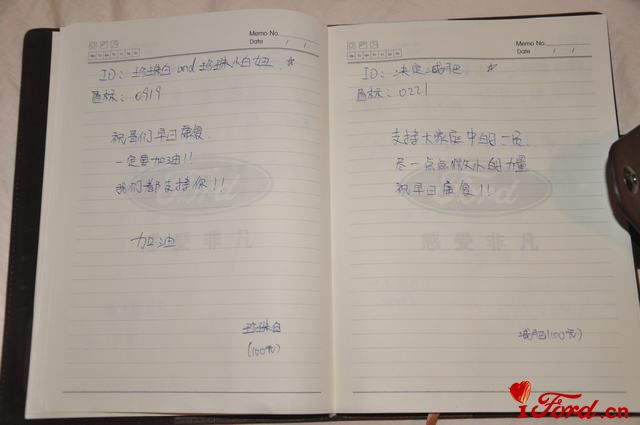 Memo No.
Date / /
ID: 珍珠白 and 珍珠小白妞 ☆
车标: 0919
祝哥们早日康复
一定要加油!!
我们都支持你!!
加油
珍珠白
(100元)
Ford
感受非凡
Memo No.
Date / /
ID: 决定减肥 ☆
车标: 0221
支持大家庭中的一员
尽一点点微小的力量
祝早日康复!!
减肥(100元)
Ford
感受非凡
iFord.cn